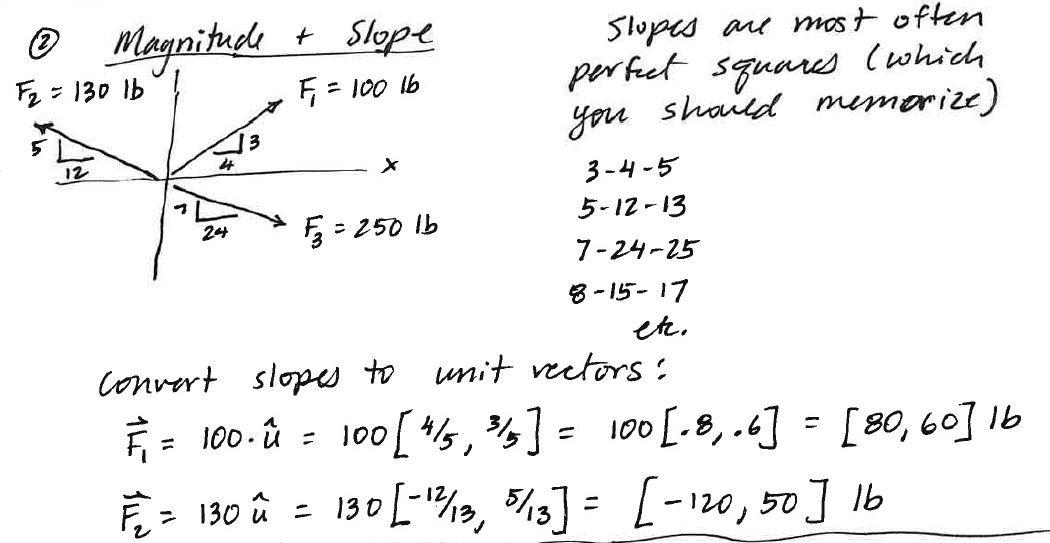 ② Magnitude + Slope
F₂ = 130 lb
F₁ = 100 lb
5
12
3
4
x
7
24
F₃ = 250 lb
Slopes are most often
perfect squares (which
you should memorize)
3-4-5
5-12-13
7-24-25
8-15-17
etc.
Convert slopes to unit vectors:
F⃗₁ = 100·û = 100[4/5, 3/5] = 100[.8, .6] = [80, 60] lb
F⃗₂ = 130 û = 130[-12/13, 5/13] = [-120, 50] lb